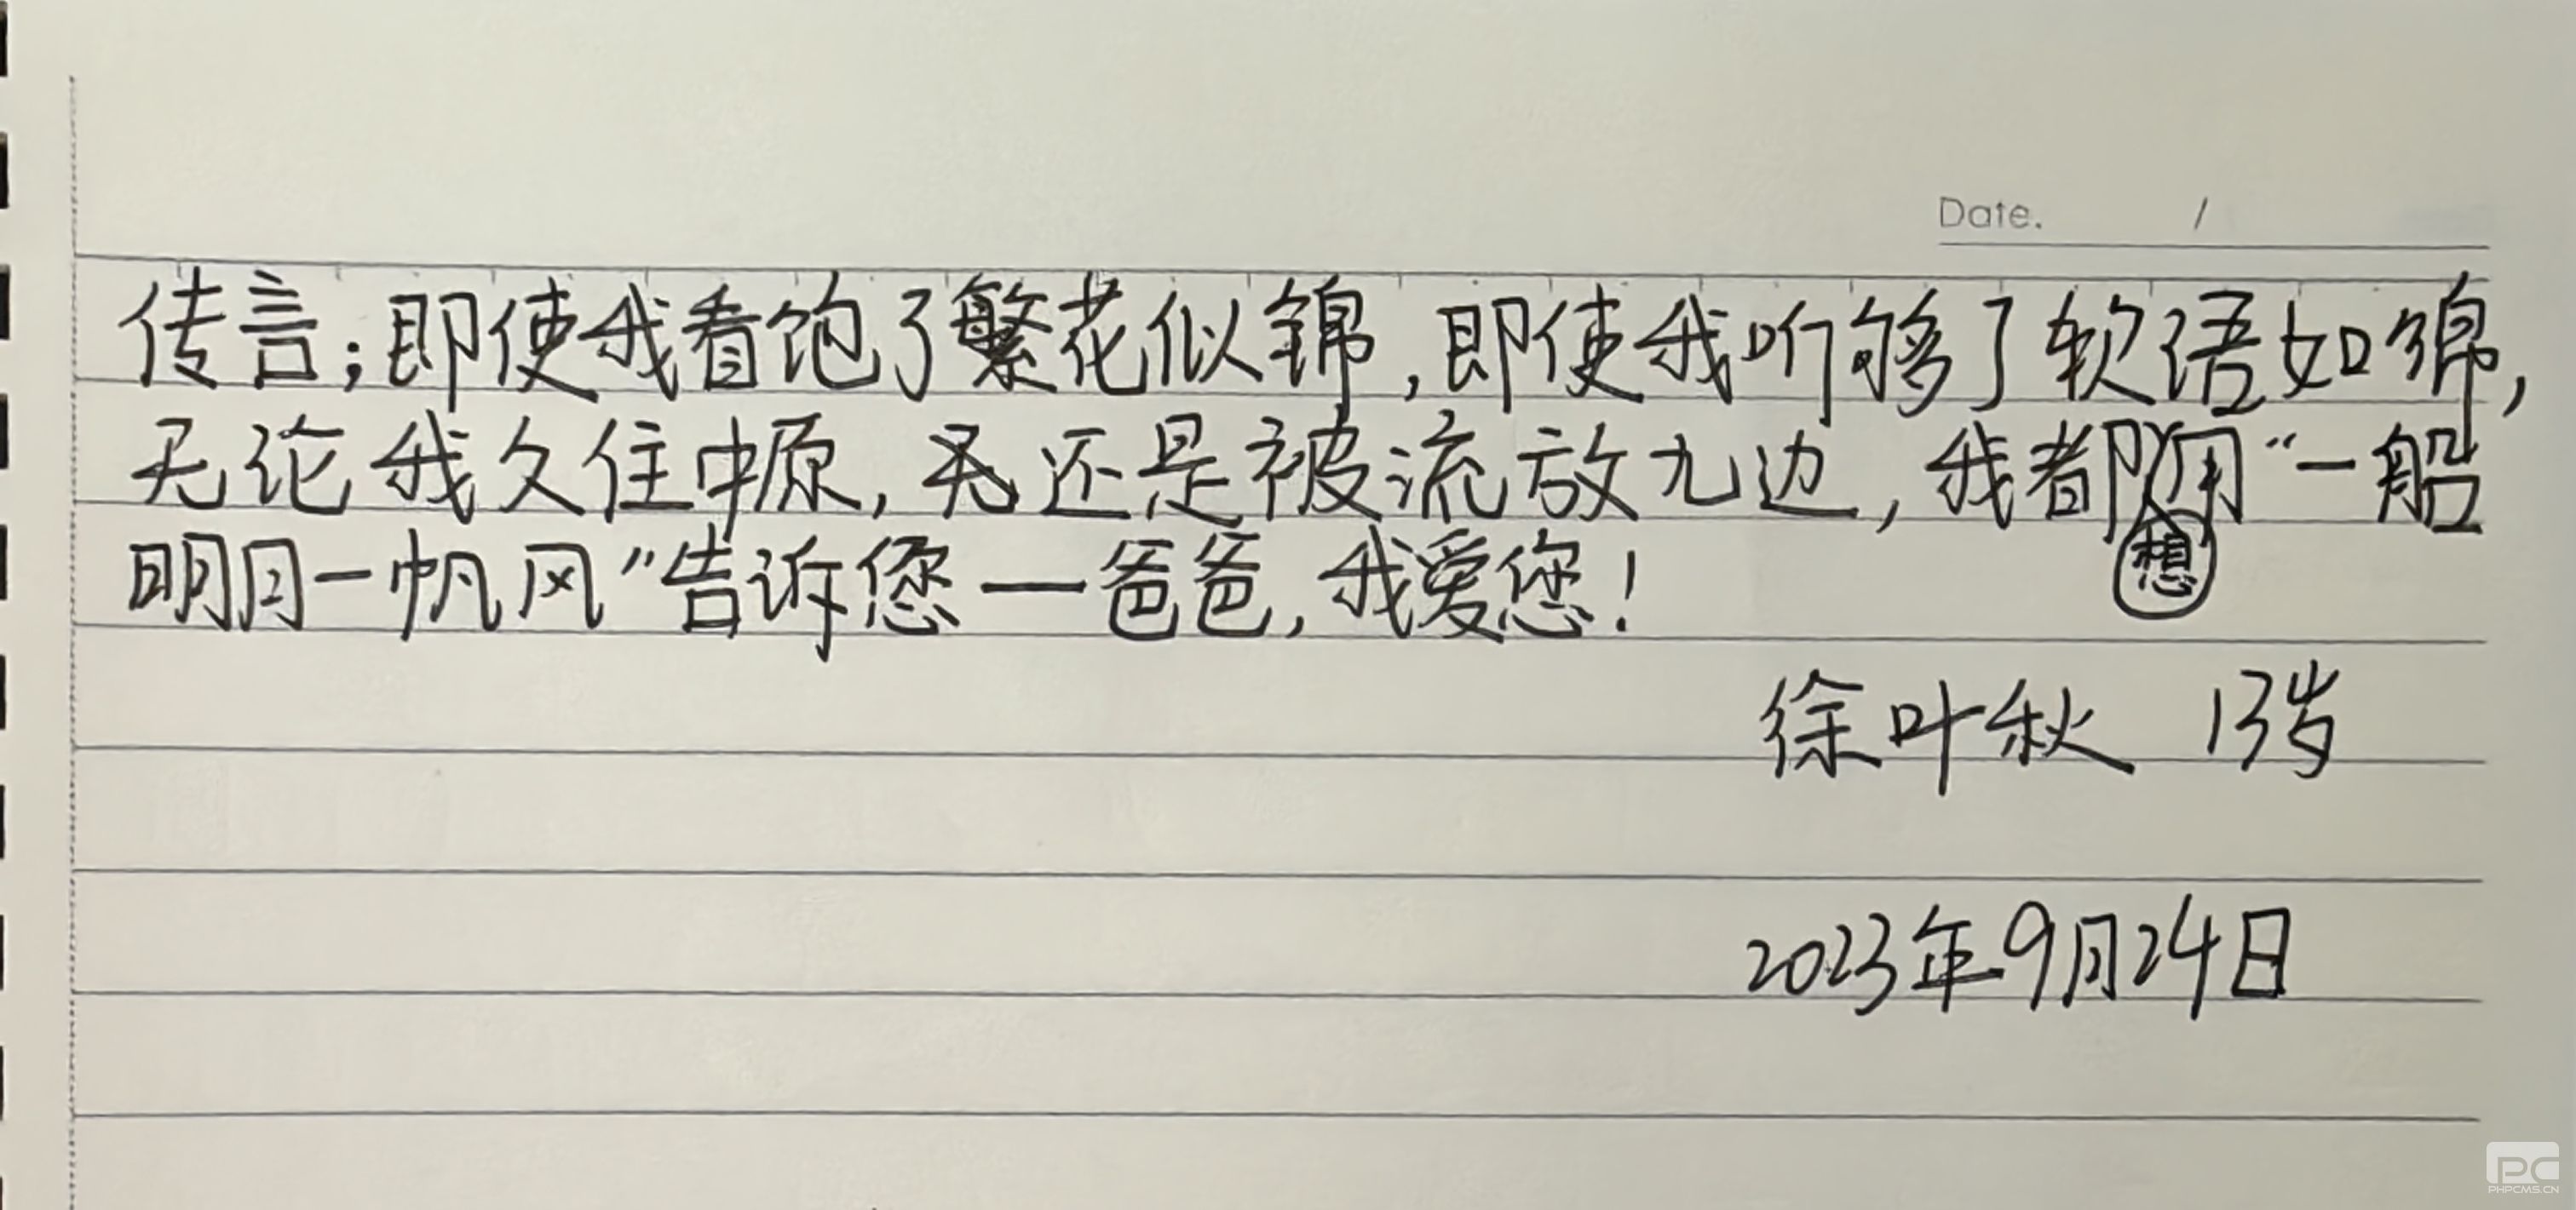 Date. /
传言；即使我看饱了繁花似锦，即使我听够了软语如绵，
无论我久住中原，无还是被流放九边，我都想用“一船
明月一帆风”告诉您—爸爸，我爱您！
徐叶秋 13岁
2023年9月24日
PC
PHPCMS.CN